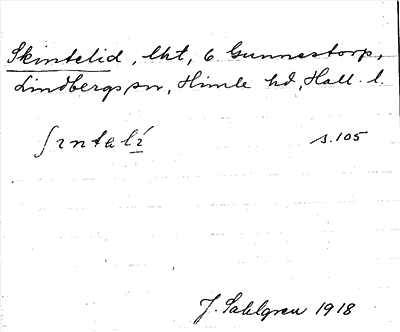 Skintelid, lht, 6 Gunnestorp,
Lindbergs sn, Himle hd, Hall. l.
ʃıntalí s.105
J. Sahlgren 1918